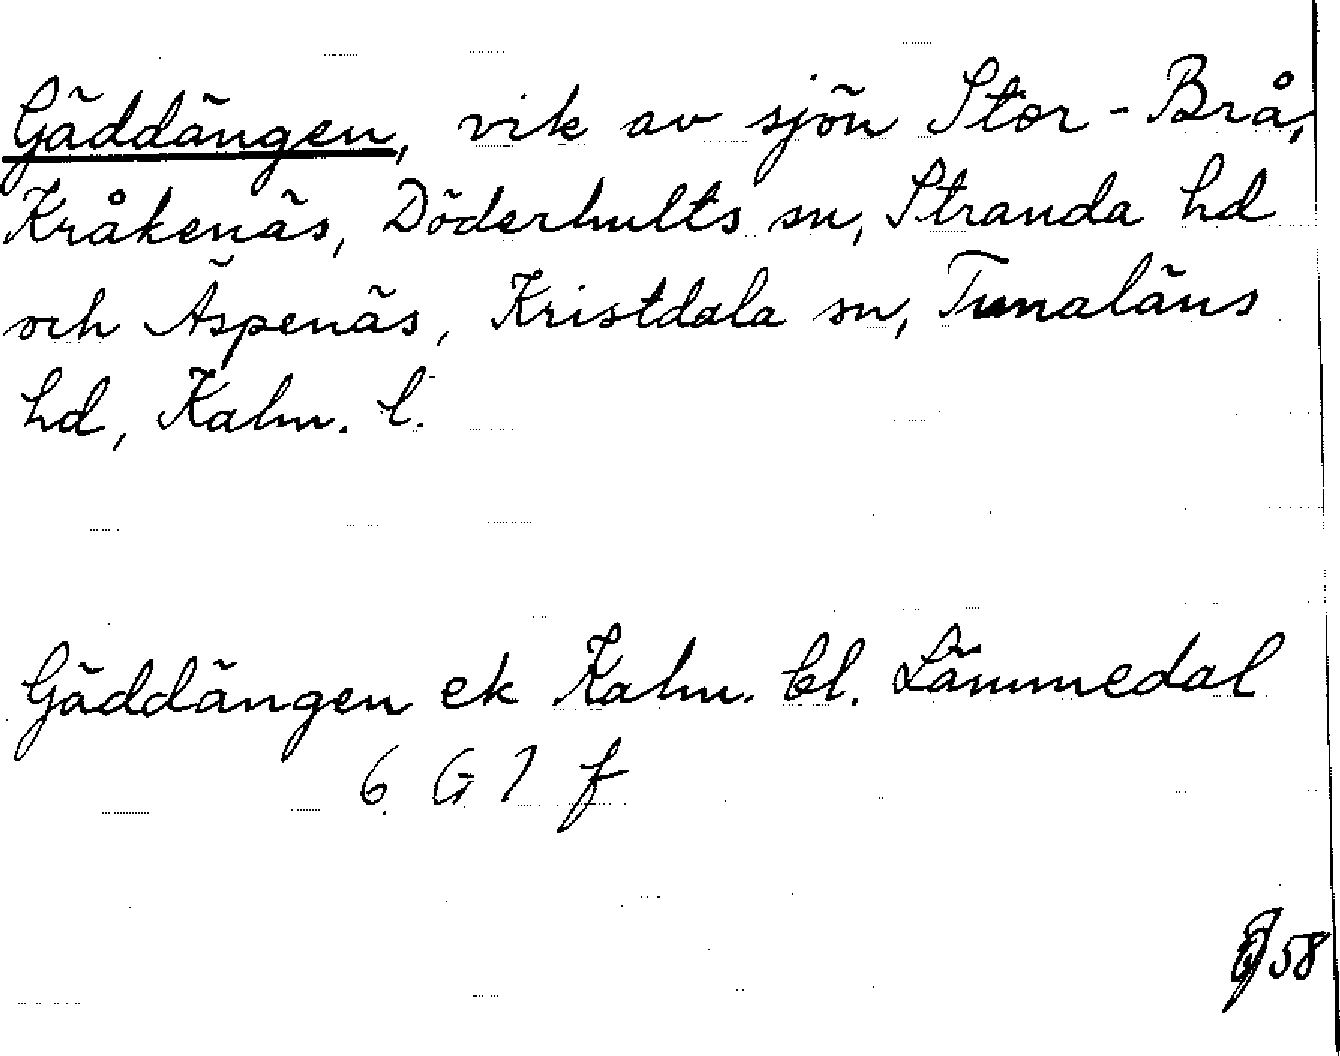 Gäddängen, vik av sjön Stor-Brå,
Kråkenäs, Döderhults sn, Stranda hd
och Äspenäs, Kristdala sn, Tunaläns
hd, Kalm. l.
Gäddängen ek Kalm. bl. Lämmedal
6 G 7 f
58